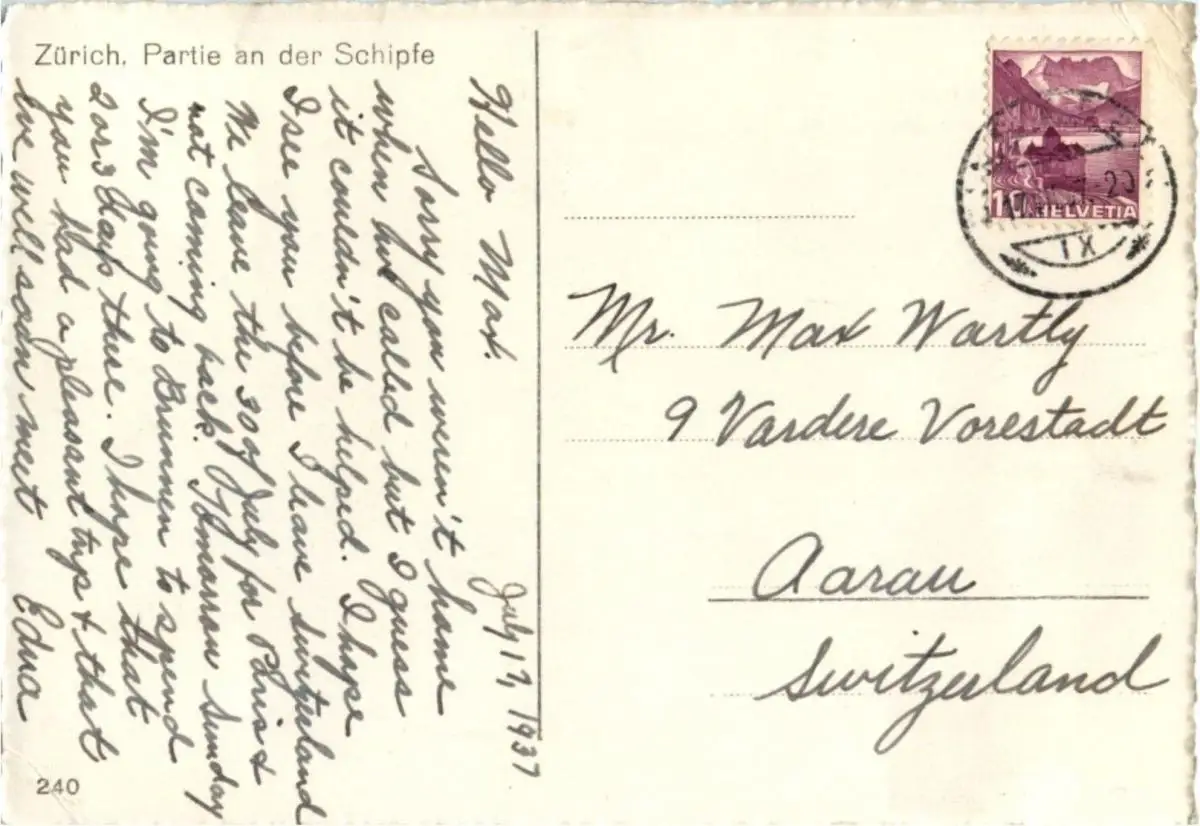 Zürich. Partie an der Schipfe
July 17, 1937
Hello Max.
Sorry you weren't home
when but called but I guess
it couldn't be helped. I hope
I see you before I leave Switzerland
We leave the 30 of July for Paris &
not coming back. Tomorrow Sunday
I'm going to Brunnen to spend
2 or 3 days there. I hope that
you had a pleasant trip & that
we will soon meet
Edna
240
HELVETIA
10
IX
Mr. Max Wartly
9 Vardere Vorestadt
Aarau
Switzerland